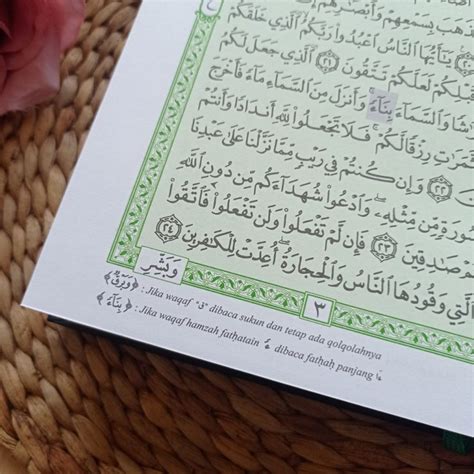 بِسَمْعِهِمْ وَأَبْصَٰرِهِمْ
يَٰٓأَيُّهَا ٱلنَّاسُ ٱعْبُدُوا۟ رَبَّكُمُ ٱلَّذِى خَلَقَكُمْ
لَعَلَّكُمْ تَتَّقُونَ ٢١ ٱلَّذِى جَعَلَ لَكُمُ
وَٱلسَّمَآءَ بِنَآءً وَأَنزَلَ مِنَ ٱلسَّمَآءِ مَآءً فَأَخْرَجَ
رِزْقًا لَّكُمْ فَلَا تَجْعَلُوا۟ لِلَّهِ أَندَادًا وَأَنتُمْ
٢٢ وَإِن كُنتُمْ فِى رَيْبٍ مِّمَّا نَزَّلْنَا عَلَىٰ عَبْدِنَا
مِّن مِّثْلِهِۦ وَٱدْعُوا۟ شُهَدَآءَكُم مِّن دُونِ ٱللَّهِ
صَٰدِقِينَ ٢٣ فَإِن لَّمْ تَفْعَلُوا۟ وَلَن تَفْعَلُوا۟ فَٱتَّقُوا۟
ٱلَّتِى وَقُودُهَا ٱلنَّاسُ وَٱلْحِجَارَةُ أُعِدَّتْ لِلْكَٰفِرِينَ ٢٤
وَبَشِّرِ
٣
﴿وَبَرْقٌ﴾ : Jika waqaf "قْ" dibaca sukun dan tetap ada qolqolahnya
﴿بِنَآءً﴾ : Jika waqaf hamzah fatḥatain ءً dibaca fatḥaḥ panjang